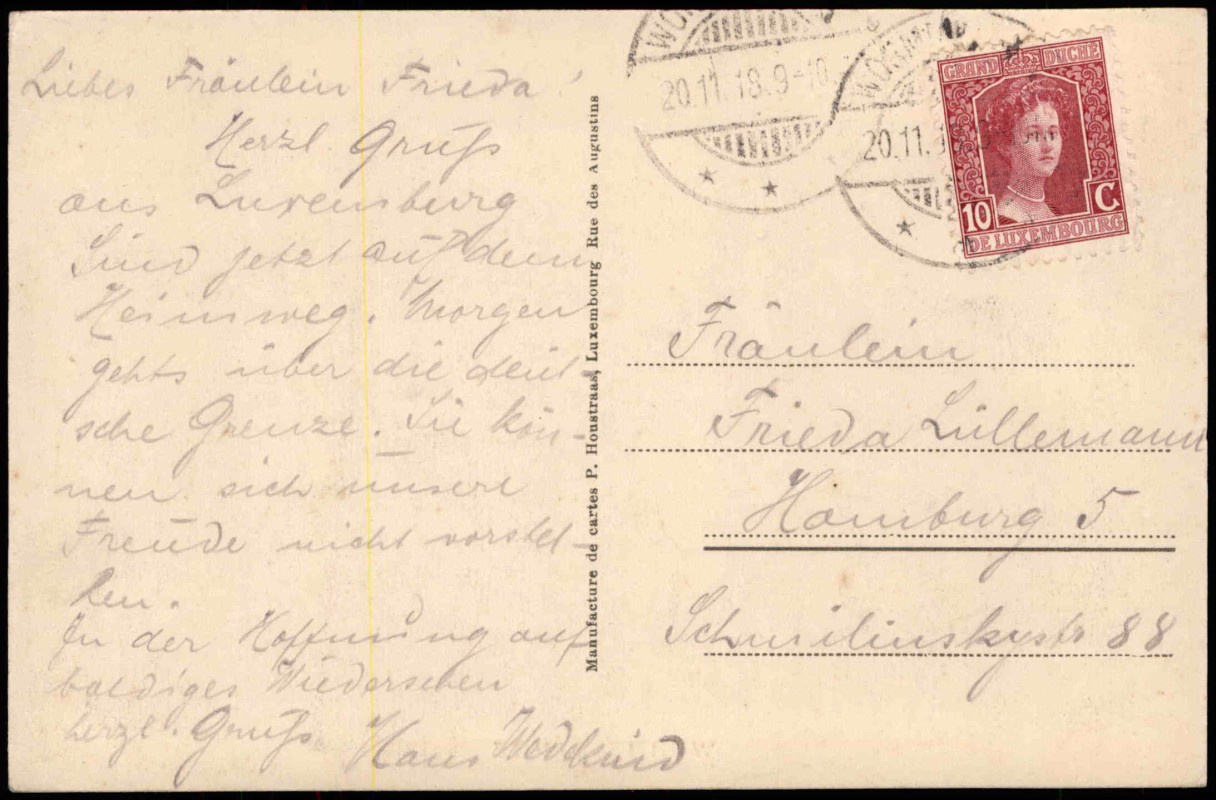 Liebes Fräulein Frieda!
Herzl. Gruß
aus Luxemburg
Sind jetzt auf dem
Heimweg. Morgen
gehts über die deut-
sche Grenze. Sie kön-
nen sich unsere
Freude nicht vorstel-
len.
In der Hoffnung auf
baldiges Wiedersehen
herzl. Gruß
Hans Weddkind
Manufacture de cartes P. Houstraas, Luxembourg Rue des Augustins
20.11.18.9-10
20.11.1
GRAND DUCHE
10 C.
DE LUXEMBOURG
Fräulein
Frieda Lüllemann
Hamburg 5
Schmilinskystr 88